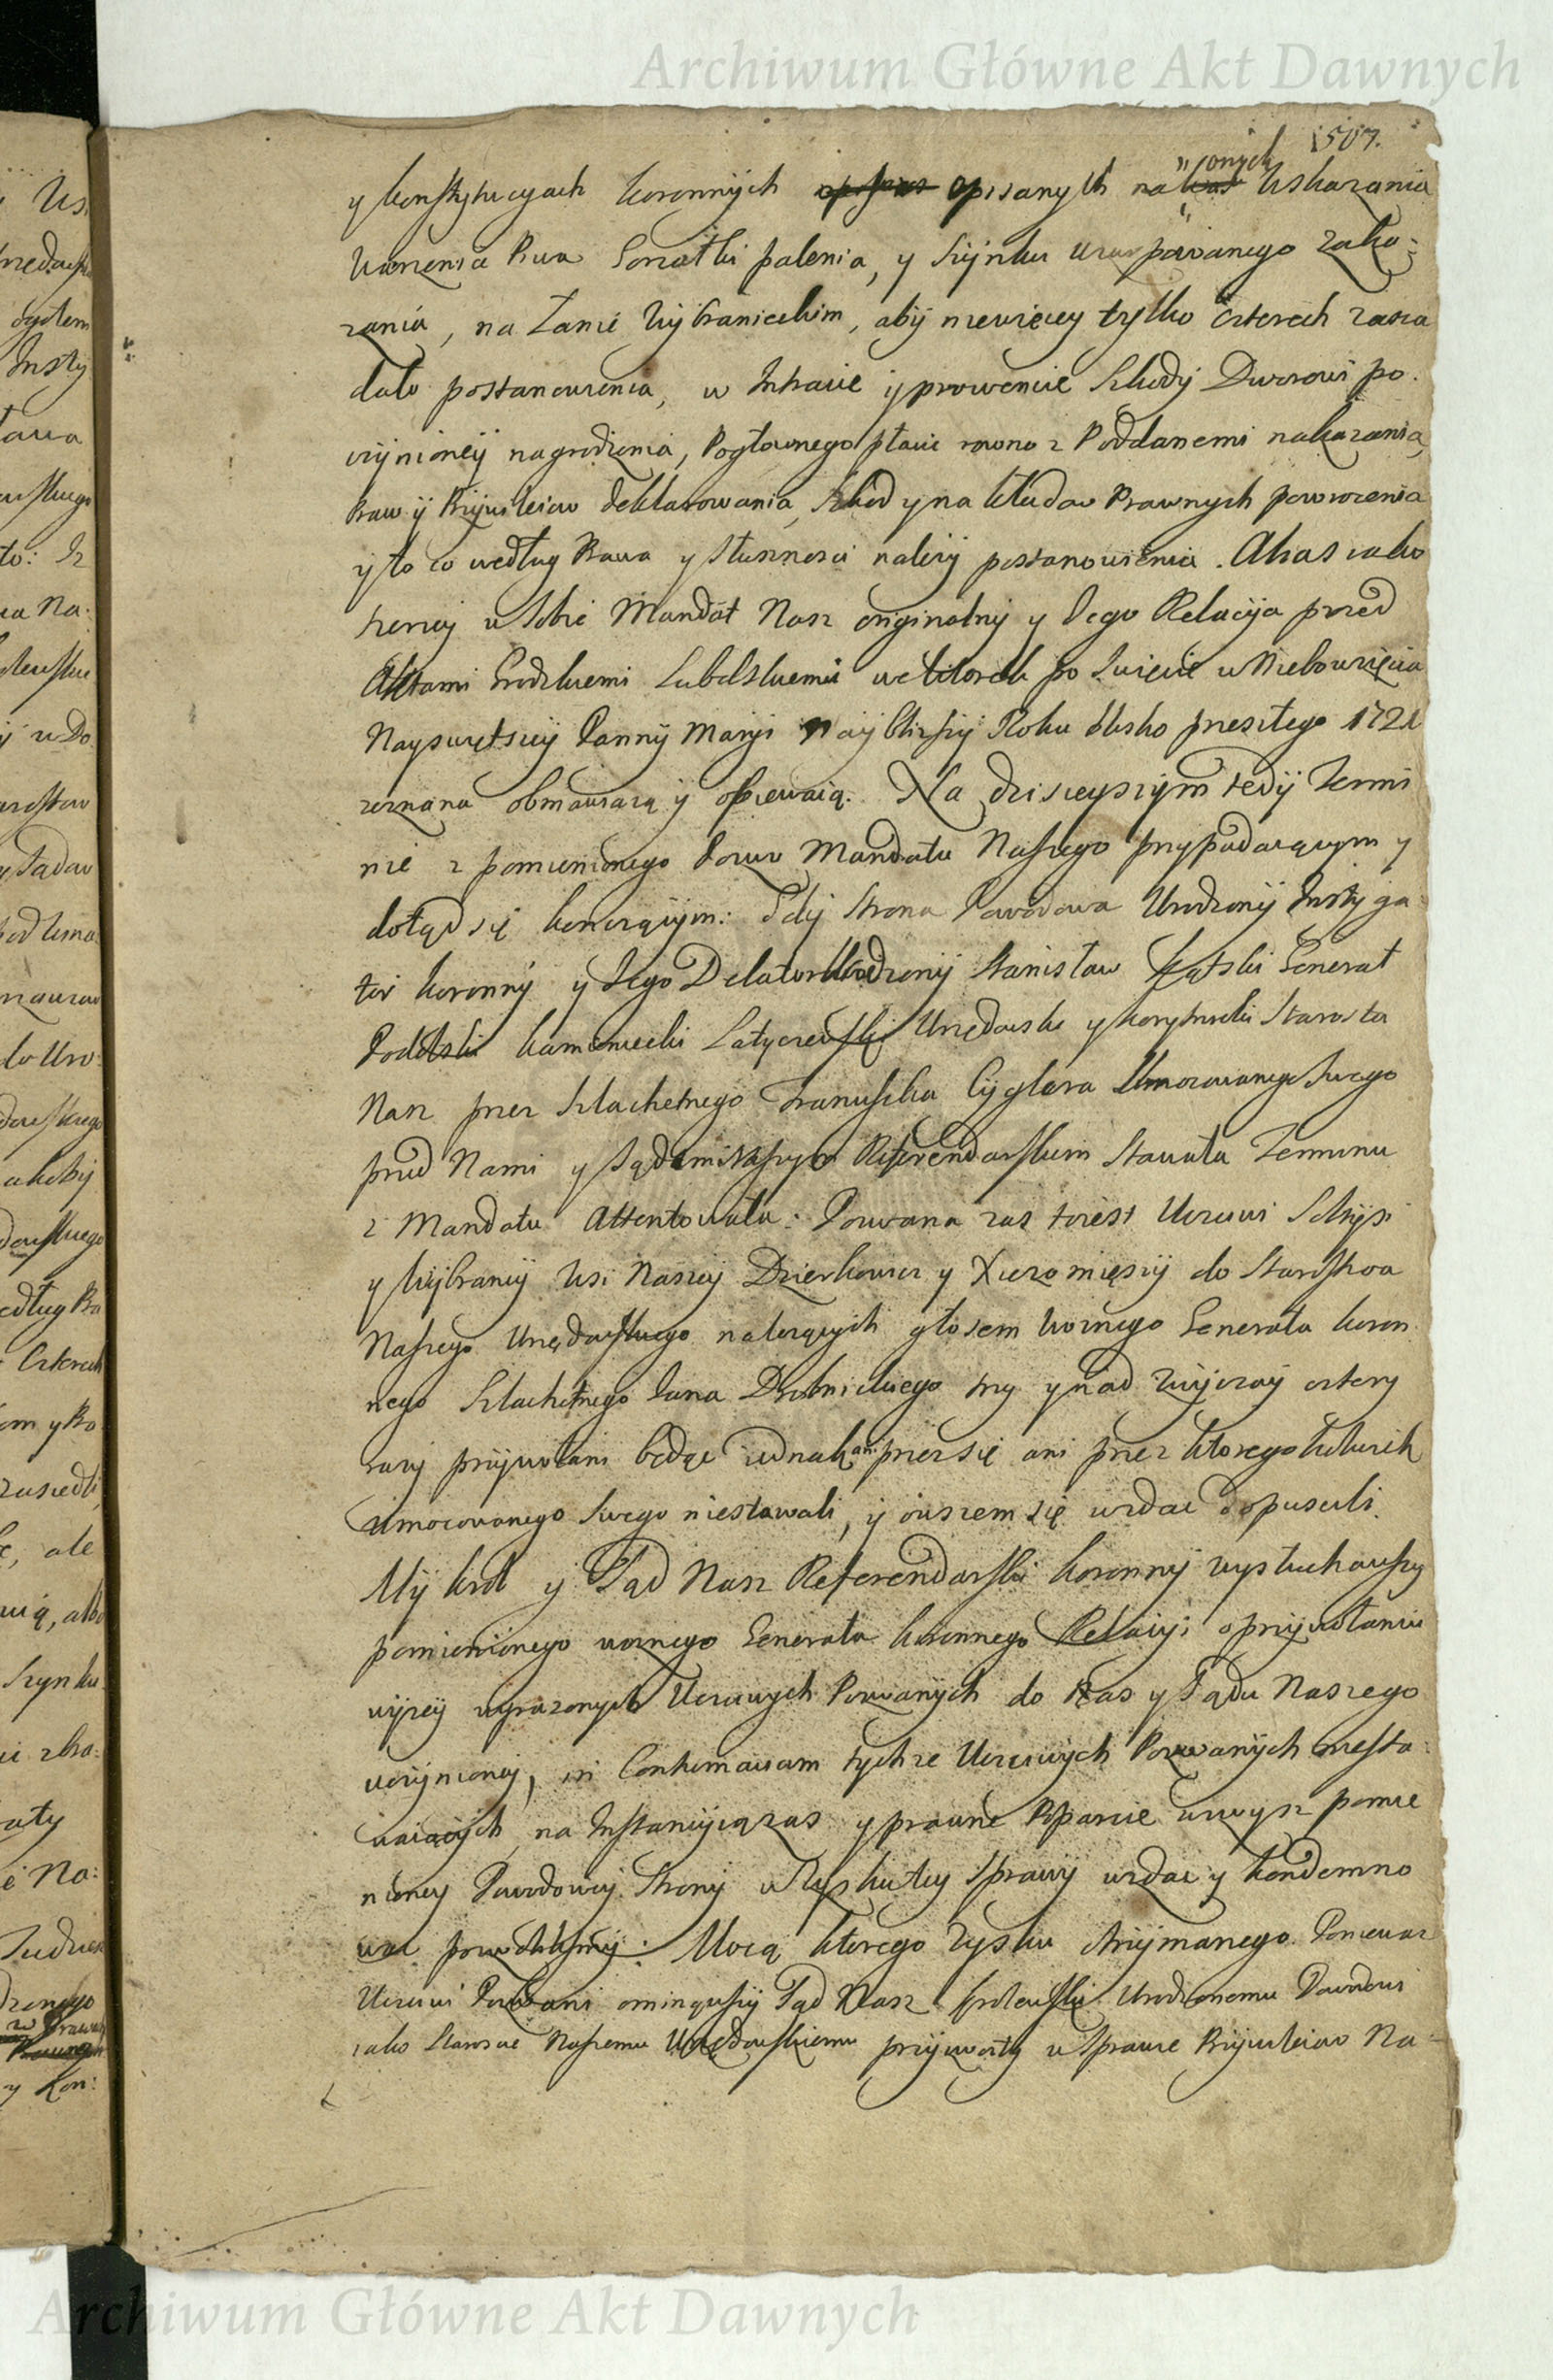 Archiwum Główne Akt Dawnych
507.
y konstytucyach koronnych opisanych na onych wskazania
warzenia Piwa Gorzałki palenia, y szynku uzurpowanego zaka:
zania, na Łanie Wybranieckim, aby niewięcey tylko czterech zasia
dało postanowienia, w Intracie y prowencie szkody Dworowi po
czynioney nagrodzenia, Pogłownego płacić rowno z Poddanemi nakazania,
Praw y Przywileiow deklarowania, szkod y nakładow Prawnych powrocenia
y to co według Prawa y słusznosci należy postanowienia. A nas iako
szerzey w sobie Mandat Nasz oryginalny y Jego Relacyja przed
Aktami Grodzkiemi Lubelskiemi we wtorek po Swięcie w Niebowzięcia
Nayswiętszey Panny Maryi nayblizszy Roku blisko przeszłego 1721
zeznana obmawiaią y opiewaią. Na dzisieyszym tedy Termi
nie z pomienionego Pozwu Mandatu Naszego przypadaiącym y
dotąd się konczącym: Gdy strona Powodowa Urodzony Instyga
tor koronny y Jego Delator Urodzony Stanisław Kątski Generał
Podolski kamieniecki Latyczewski Urzędowski y korytnicki Starosta
Nasz przez Szlachetnego Franciszka Cyglera Umocowanego swego
przed Nami y Sądem Naszym Referendarskim stawała Terminu
z Mandatu Attentowała: Pozwana zas to iest Uczciwi Sołtysi
y Wybrancy wsi Naszey Dzierkowic y Xiezomięszy do Starostwa
Naszego Urzędowskiego nalezących głosem woznego Generała koron
nego Szlachetnego Jana Drobnickiego trzy y nad zwyczay cztery
razy przywołani będąc iednak ani przez się ani przez ktoregokolwiek
Umocowanego swego niestawali, y owszem się wzdać dopuscili.
My krol y Sąd Nasz Referendarski koronny wysłuchawszy
pomienionego woznego Generała koronnego Relacyi o przywołaniu
wyzey wyrazonych Uczciwych Pozwanych do Nas y Sądu Naszego
uczynioney, in Contumaciam tychze Uczciwych Pozwanych niesta:
waiących, na Instancyią zas y prawne Poparcie zwysz pomie
nioney Powodowey Strony w Zysku tey sprawy wzdać y kondemno
wać pozwolilismy: Mocą ktorego zysku otrzymanego. Poniewaz
Uczciwi Pozwani ominąwszy Sąd Nasz krolewski Urodzonemu Powodowi
iako Staroscie Naszemu Urzędowskiemu przyzwoity w sprawie Przywileiow Na
Archiwum Główne Akt Dawnych